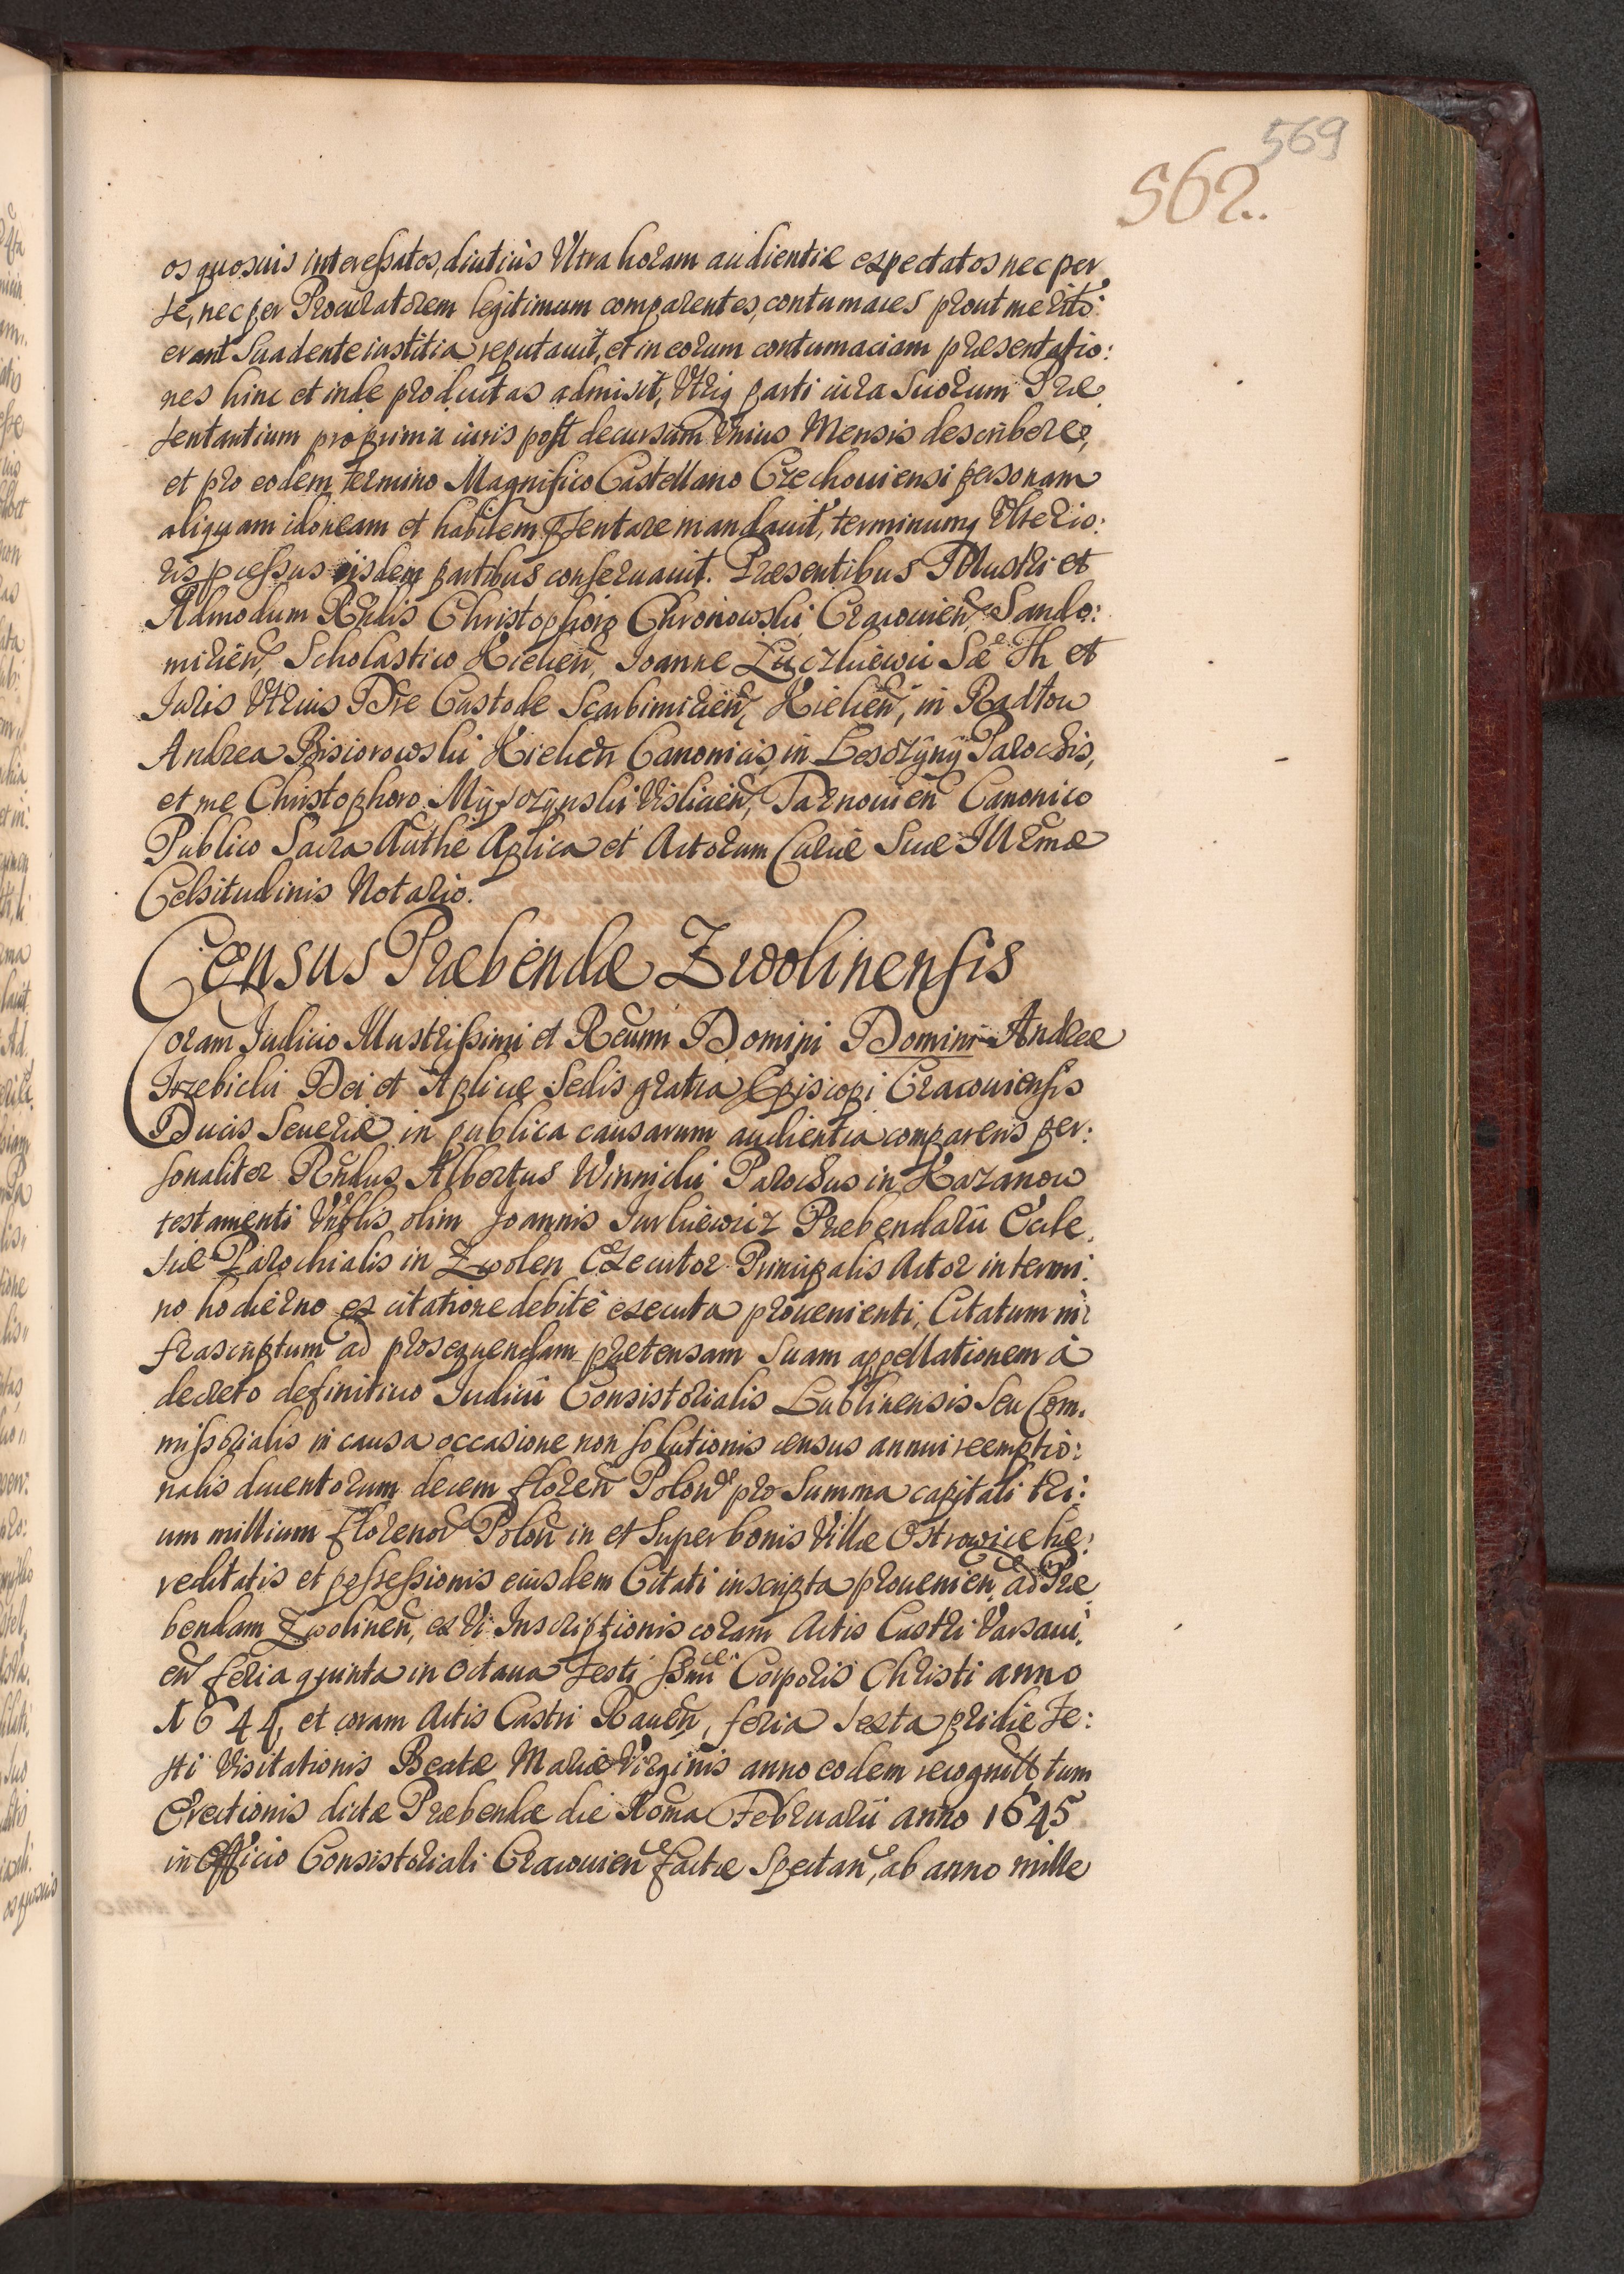 569
562.
os quosuis interessatos, diutius Vltra horam audientiæ expectatos nec per
se, nec per Procuratorem legitimum comparentes, contumaces prout merito
erant Suadente iustitia reputauit, et in eorum contumaciam præsentatio:
nes hinc et inde productas admisit, Vtriq parti iura Suorum Præ
sentantium pro prima iuris post decursum Vnius Mensis describere,
et pro eodem termino Magnifico Castellano Czechouiensi personam
aliquam idoneam et habilem pñtare mandauit, terminumq Vlterio:
ris pcessus iisdem partibus conseruauit. Præsentibus Illustri et
Admodum Rñdis Christophoro Chronowski Cracouieñ, Sando:
mirieñ, Scholastico Kielieñ, Joanne Luczkiewic Sæ Th et
Juris Vtrius Dre Custode Scarbimirieñ, Kielieñ, in Radłow
Andrea Pisiorowski Kielieñ Canonicis, in Lesczyny Parochis,
et me Christophoro Myszczynski Visliceñ, Tarnouieñ Canonico
Publico Sacra Authe Aplica et Actorum Curiæ Suæ Illrmæ
Celsitudinis Notario.
Census Præbendæ Zwolinensis
Coram Judicio Illustrissimi et Reumi Domini Domini Andreæ
Trzebicki Dei et Aplicæ Sedis gratia Episcopi Cracouiensis
Ducis Seueriæ in publica causarum audientia comparens per:
sonaliter Rñdus Albertus Winnicki Parochus in Kazanow
testamenti Vñblis olim Joannis Jurkiewicz Præbendarii Eccle
siæ Parochialis in Zwolen Executor Principalis Actor in termi:
no hodierno ex citatione debite executa prouenienti, Citatum in
frascriptum ad prosequendam prætensam Suam appellationem à
decreto definitiuo Judicii Consistorialis Lublinensis Seu Com.
missorialis in causa occasione non solutionis census annui reemptio:
nalis ducentorum decem floreñ Poloñ pro Summa capitali tri:
um millium florenoř Poloñ in et Super bonis Villæ Ostrowice hæ:
reditatis et possessionis eiusdem Citati inscripta prouenieñ, ad Præ
bendam Zwolineñ, ex Vi Inscriptionis coram Actis Castri Varsaui.
eñ feria quinta in Octaua Festi ssmi Corporis Christi anno
1644, et coram Actis Castri Raueñ, feria Sexta pridie Fe:
sti Visitationis Beatæ Mariæ Virginis anno eodem recognit tum
Erectionis dictæ Præbendæ die Nona Februarii anno 1645
in Officio Consistoriali Cracouieñ factæ Spectañ, ab anno mille